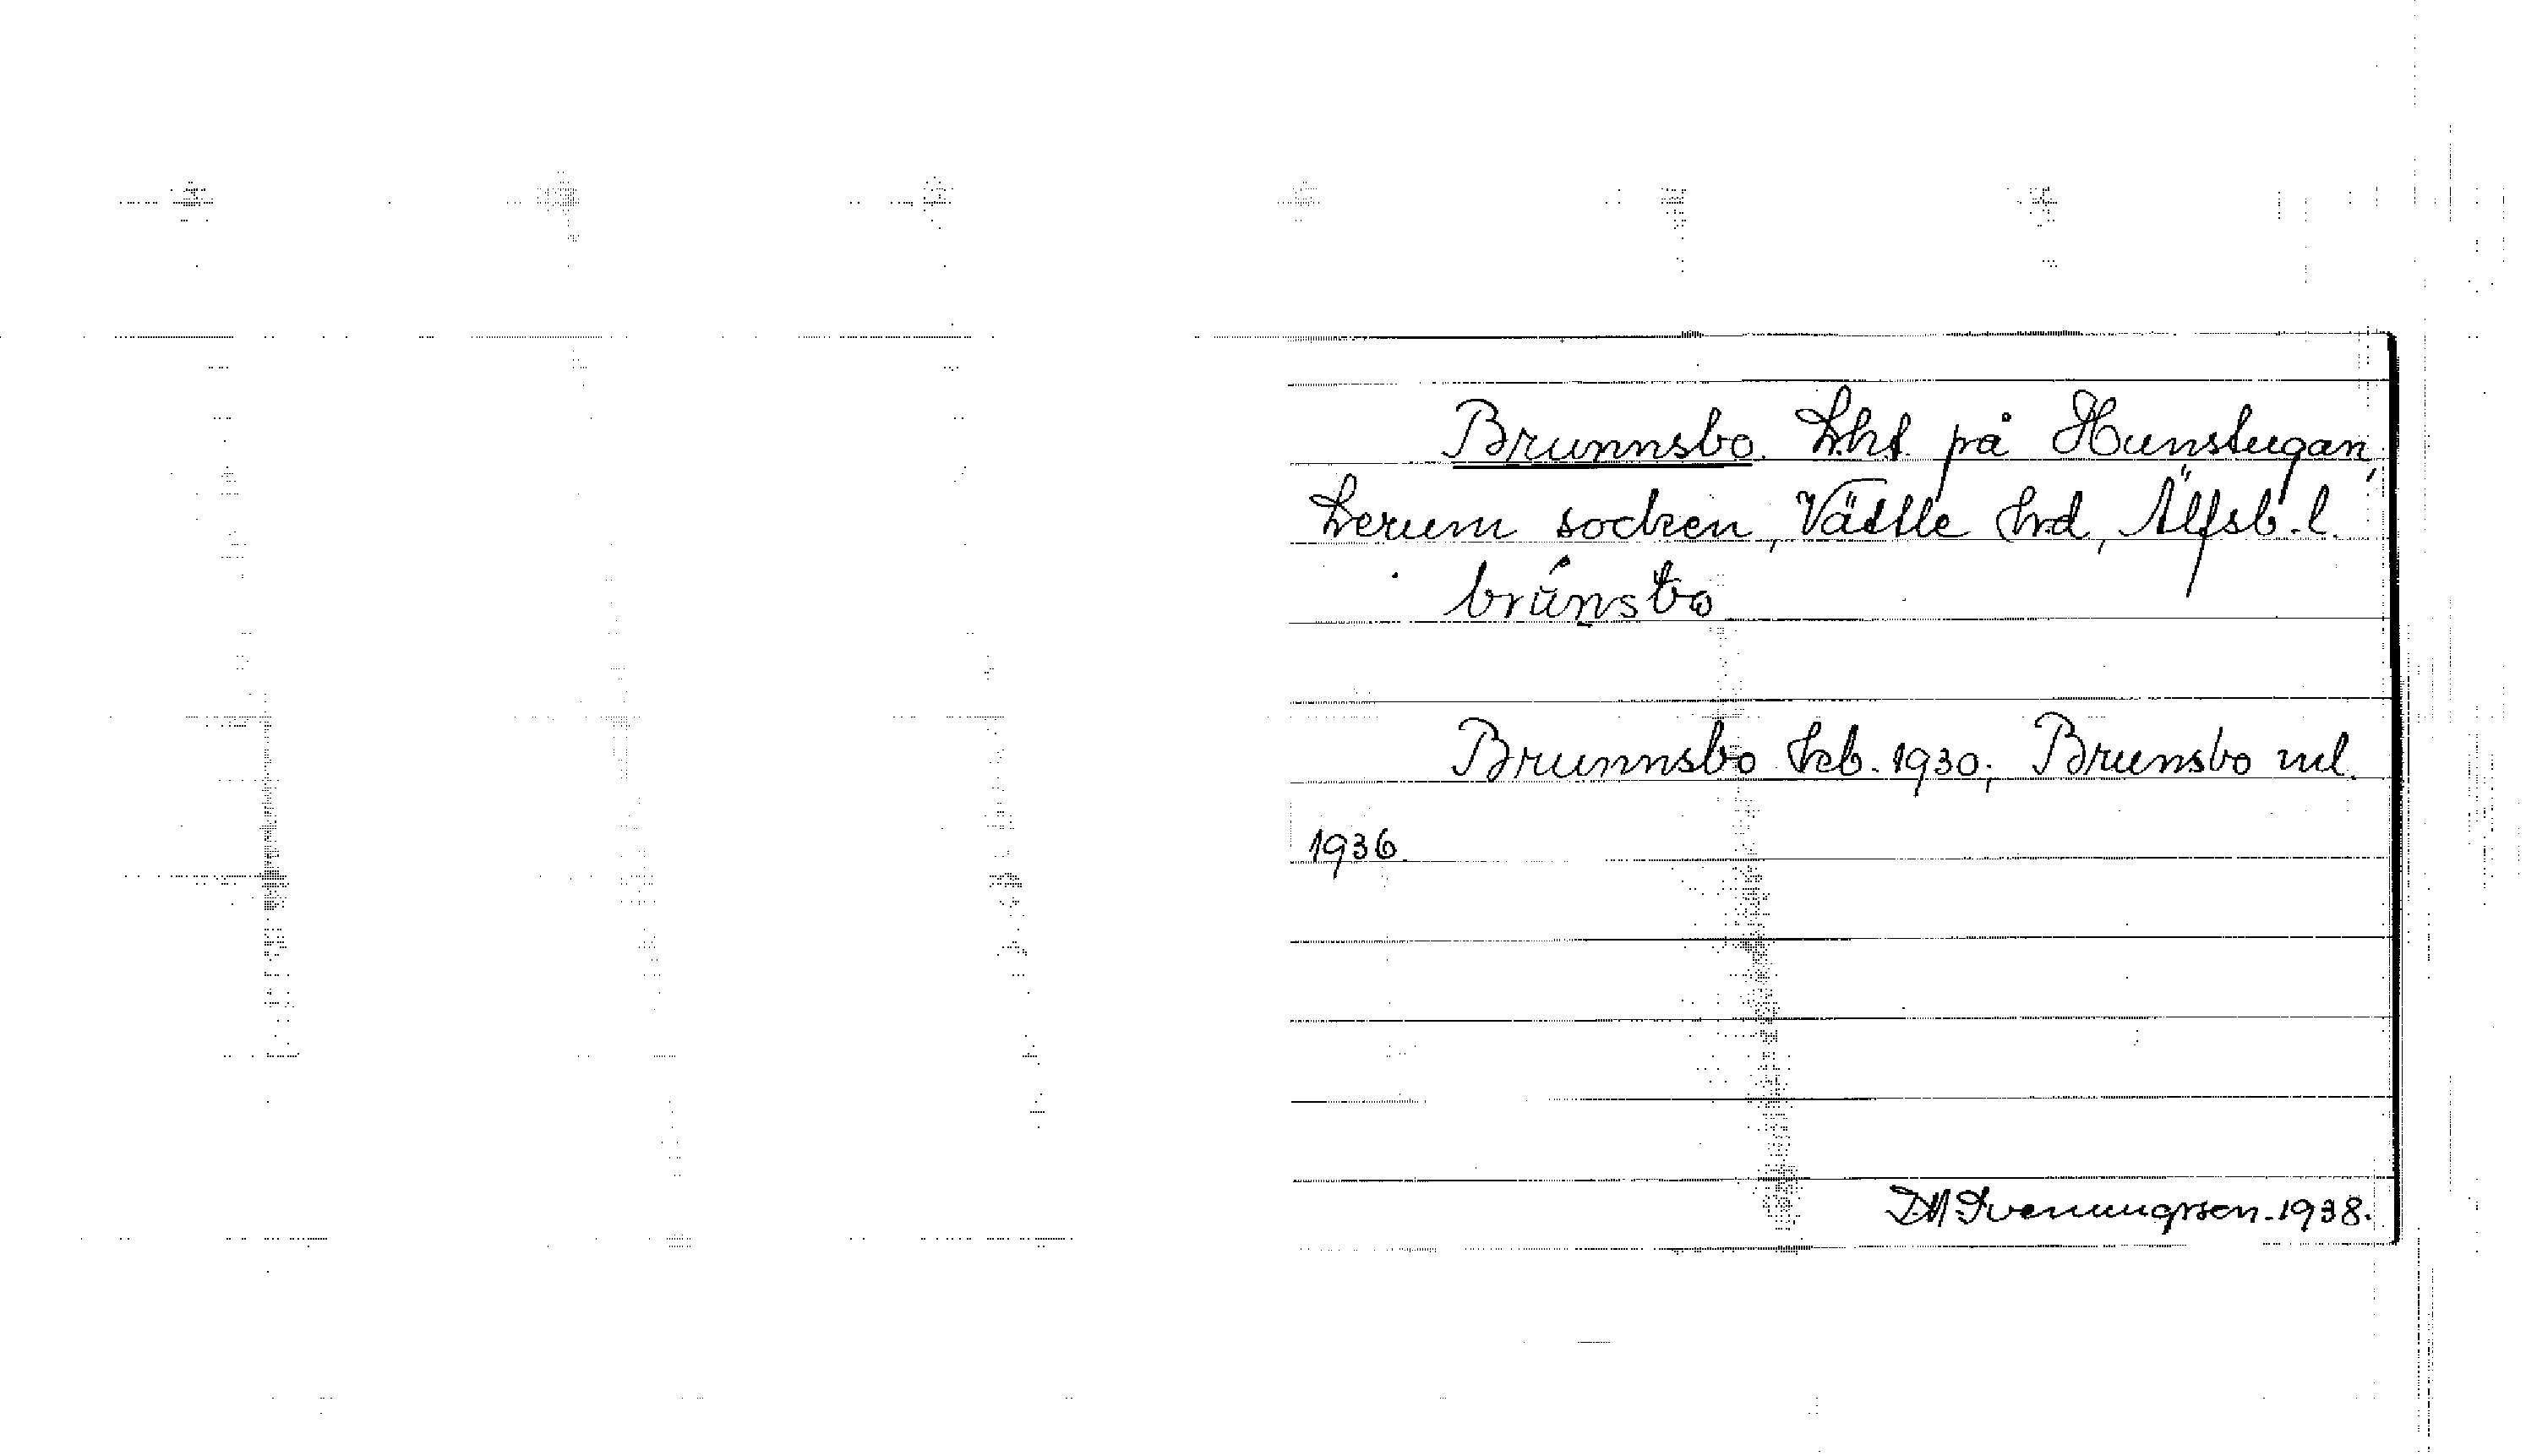 Brunnsbo. Lht. på Hunstugan,
Lerum socken, Vättle hd, Älfsb. l.
brunsbo
Brunnsbo kb. 1930; Brunsbo ml.
1936.
D. A. Svenungsson. 1938.